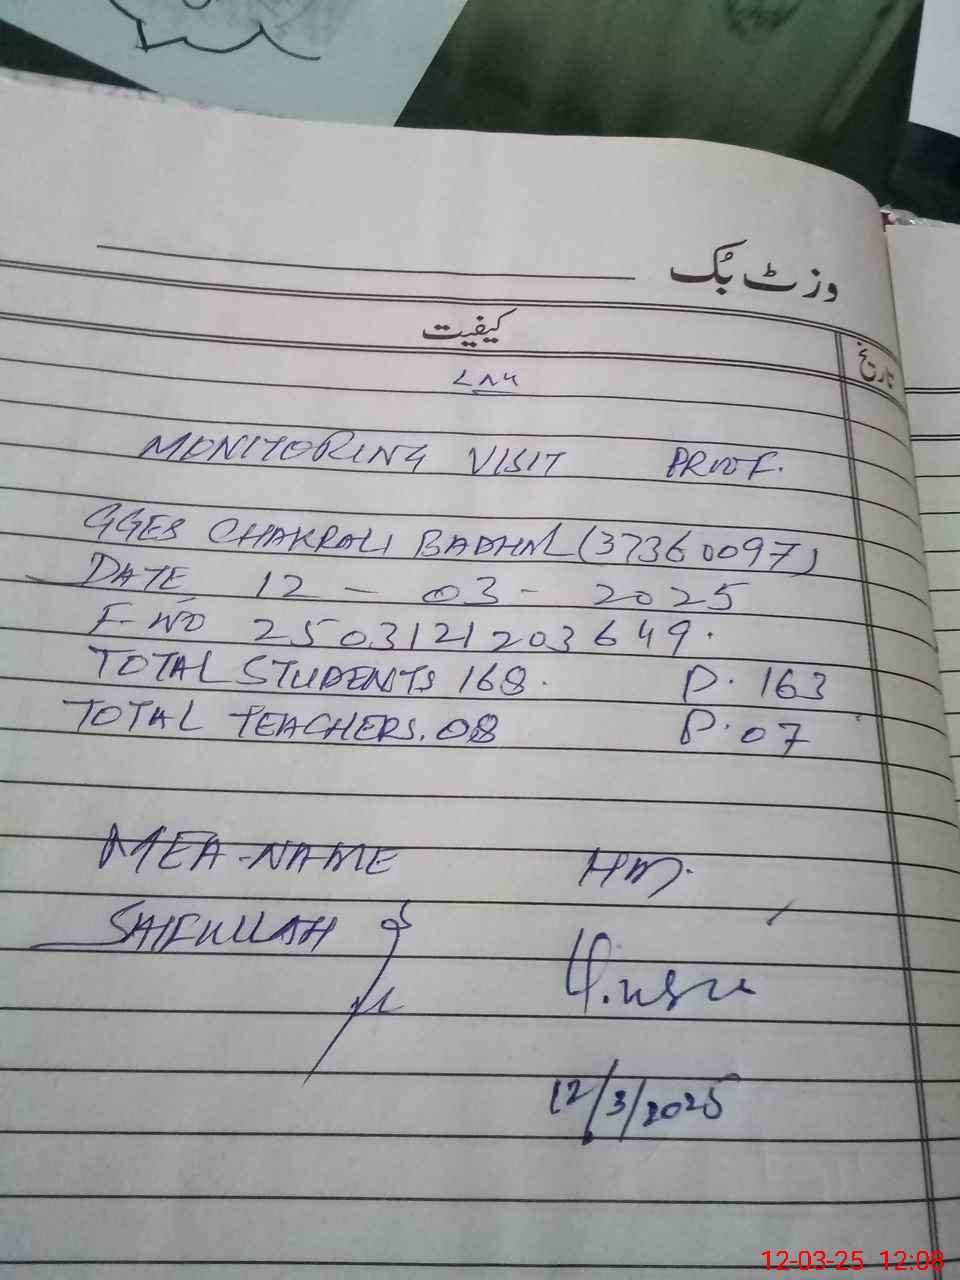 وزٹ بُک
کیفیت
تاریخ
۷۸۶
MONITORING VISIT PROOF.
GGES CHAKRALI BADHAL (37360097)
DATE 12 - 03 - 2025
F-NO 2503121203649.
TOTAL STUDENTS 168. P. 163
TOTAL TEACHERS. 08 P. 07
MEA-NAME HM.
SAIFULLAH
12/3/2025
12-03-25 12:08